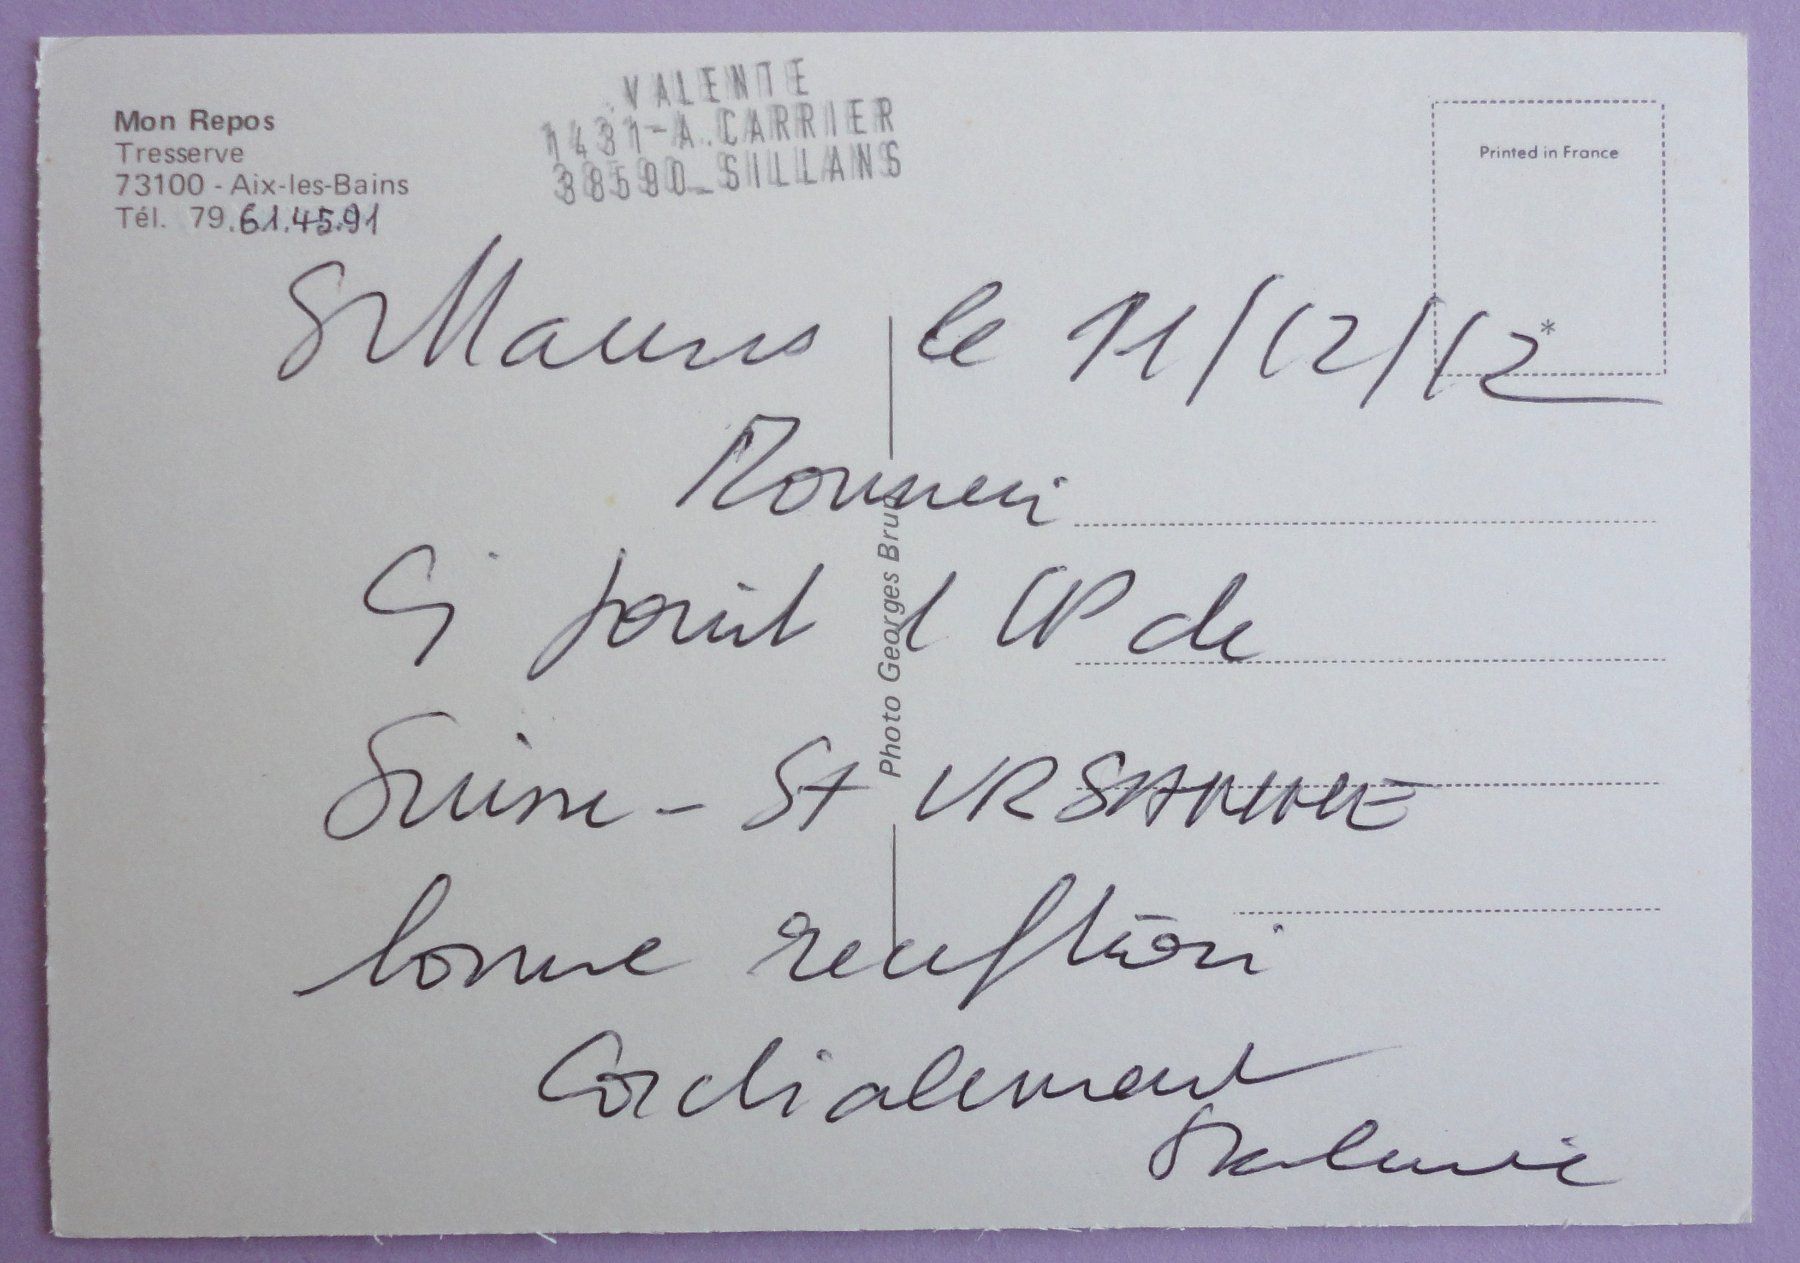 Mon Repos
Tresserve
73100 - Aix-les-Bains
Tél. 79.61.45.91
VALENTE
1431-A.CARRIER
38590_SILLANS
Printed in France
Sillans le 11/12/12
*
Monsieur
Ci joint 1 CP de
Suisse - St URSANNE
bonne reception
Cordialement
Valente
Photo Georges Brun